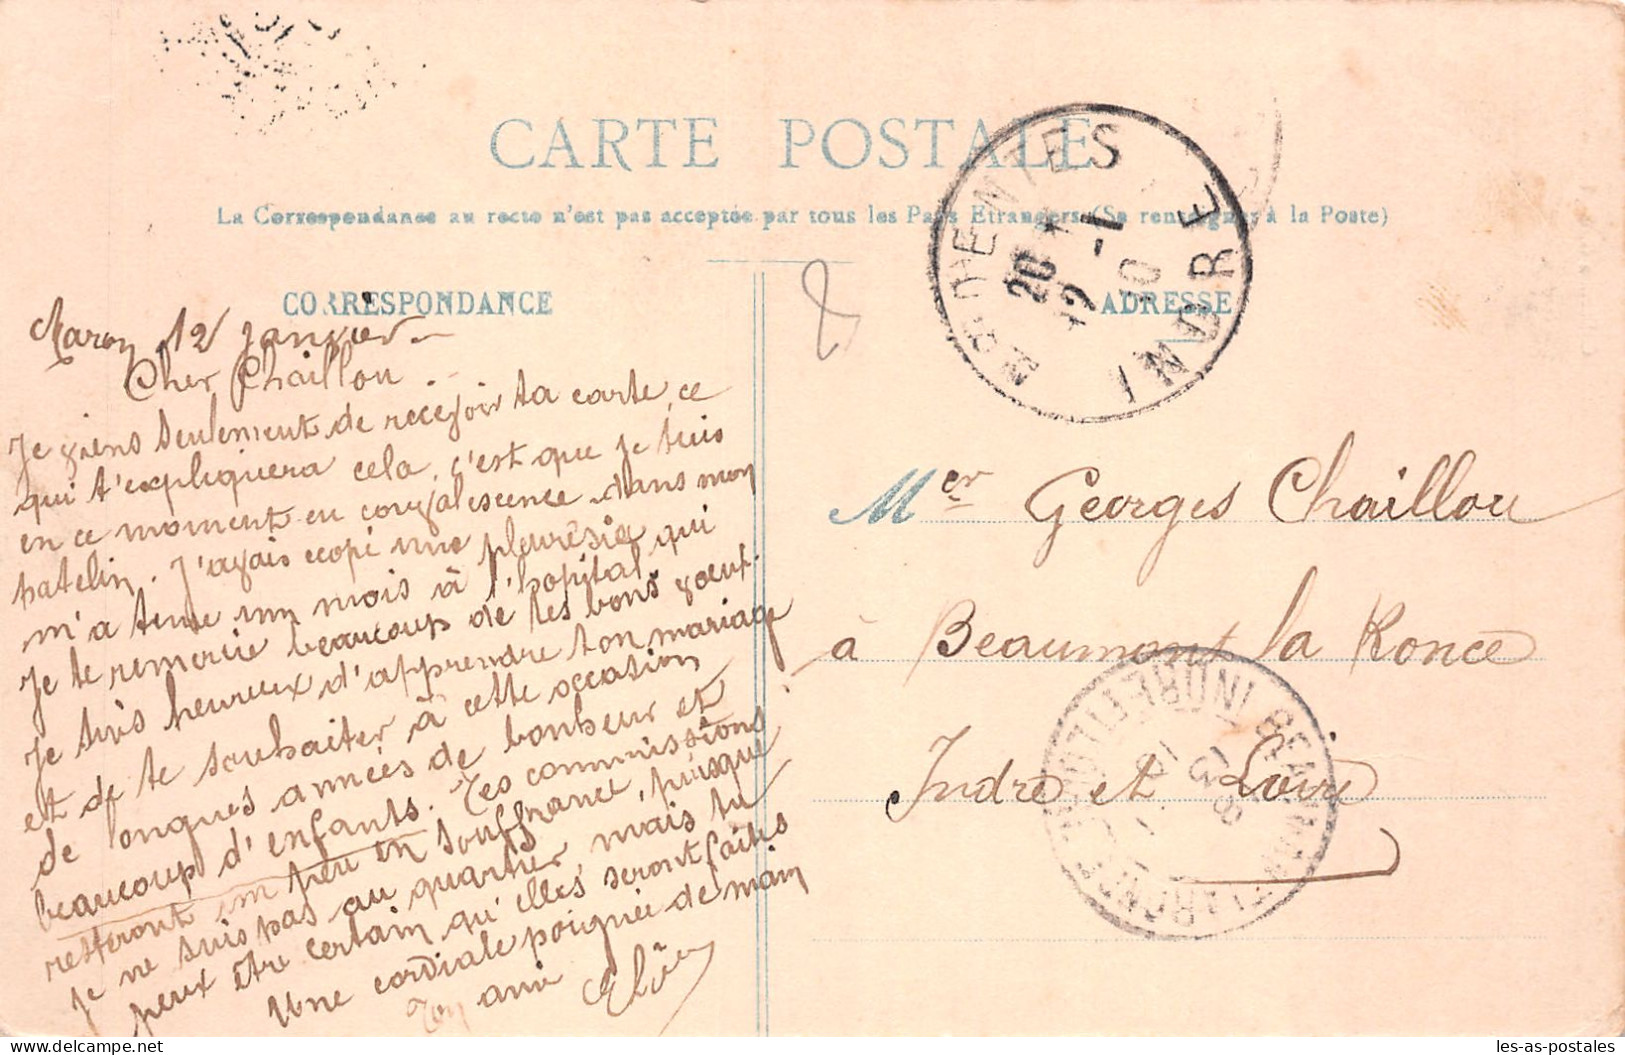 CARTE POSTALE
La Correspondance au recto n'est pas acceptée par tous les Pays Etrangers (Se renseigner à la Poste)
CORRESPONDANCE
ADRESSE
12 janvier
Cher Chaillou
Je viens seulement de recevoir ta carte, ce
qui t'expliquera cela, c'est que je suis
en ce moment en convalescence dans mon
patelin. J'avais ecopé une pleurésie qui
m'a tenu un mois à l'hopital
Je te remercie beaucoup de tes bons voeux.
Je suis heureux d'apprendre ton mariage
et de te souhaiter à cette occasion
de longues années de bonheur et
beaucoup d'enfants. Tes commissions
resteront un peu en souffrance, puisque
je ne suis pas au quartier, mais tu
peux être certain qu'elles seront faites
Une cordiale poignée de main
Ton ami
Mer Georges Chaillou
à Beaumont la Ronce
Indre et Loire
INDRE
20
12 -1
10
BEAUMONT-LA-RONCE
INDRE-ET-LOIRE
les-as-postales
www.delcampe.net